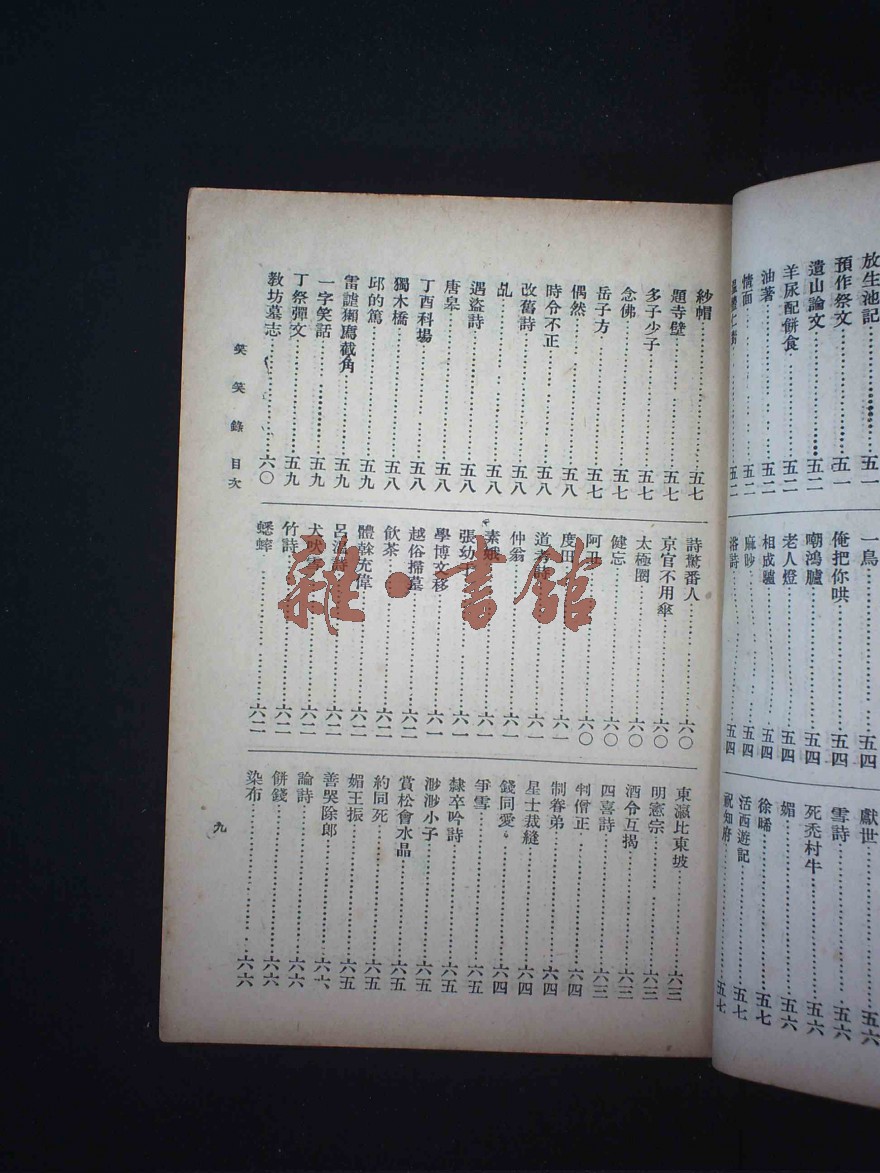 放生池記……五一
預作祭文……五一
遺山論文……五二
羊尿配餅食……五二
油著……五二
情面……五二
一鳥……五四
俺把你哄……五四
嘲鴻臚……五四
老人燈……五四
相成驢……五四
麻眇……五四
獻世……五六
雪詩……五六
死禿村牛……五六
媚……五六
徐晞……五七
活西遊記……五七
祝知府……五七
紗帽……五七
題寺壁……五七
多子少子……五七
念佛……五七
岳子方……五七
偶然……五八
時令不正……五八
改舊詩……五八
乩……五八
遇盜詩……五八
唐皋……五八
丁酉科場……五八
獨木橋……五八
邱的篤……五九
雷謔獺鷹截角……五九
一字笑話……五九
丁祭彈文……五九
教坊墓志……六〇
詩驚番人……六〇
京官不用傘……六〇
太極圈……六〇
健忘……六〇
阿丑……六〇
度田……六一
道者詩……六一
仲翁……六一
素娥……六一
張幼于……六一
學博文移……六一
越俗掃墓……六二
飲茶……六二
體幹充偉……六二
呂……六二
犬吠……六二
竹詩……六二
蟋蟀……六二
東瀛比東坡……六三
明憲宗……六三
酒令互揭……六三
四喜詩……六三
判僧正……六四
制眷弟……六四
星士裁縫……六四
錢同愛……六四
爭雪……六五
隸卒吟詩……六五
渺渺小子……六五
賞松會水品……六五
約同死……六五
媚王振……六五
善哭除郎……六六
論詩……六六
餅錢……六六
染布……六六
笑笑錄 目次
九
雜·書館